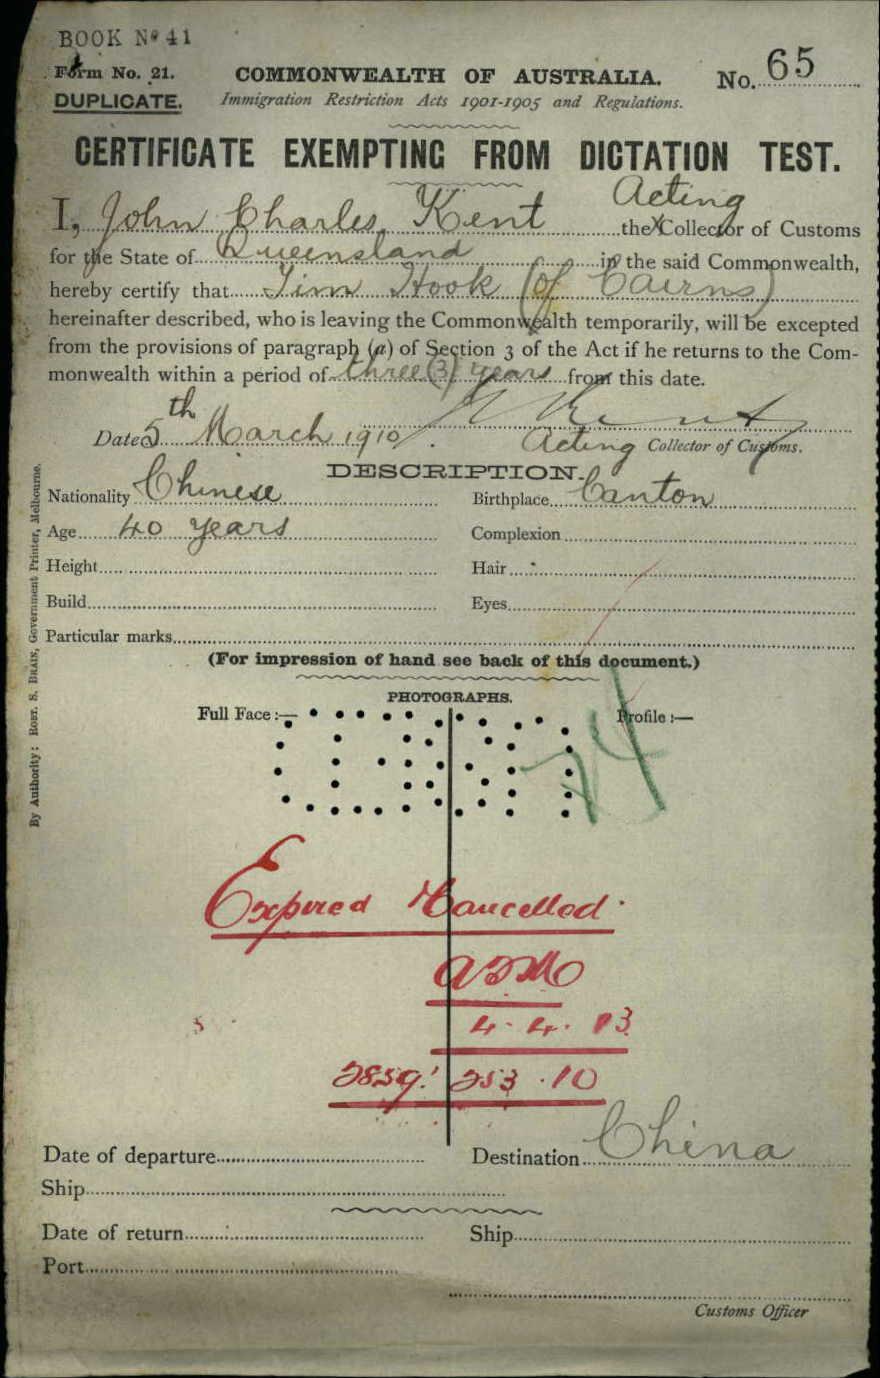 BOOK No 41
Form No. 21.
COMMONWEALTH OF AUSTRALIA.
No. 65
DUPLICATE.
Immigration Restriction Acts 1901-1905 and Regulations.
CERTIFICATE EXEMPTING FROM DICTATION TEST.
Acting
I, John Charles Kent the Collector of Customs
for the State of Queensland in the said Commonwealth,
hereby certify that Tim Hook (of Cairns)
hereinafter described, who is leaving the Commonwealth temporarily, will be excepted
from the provisions of paragraph (a) of Section 3 of the Act if he returns to the Com-
monwealth within a period of three (3) years from this date.
Date 5th March 1910. Acting Collector of Customs.
DESCRIPTION.
Nationality Chinese Birthplace Canton
Age 40 years Complexion
Height Hair
Build Eyes
Particular marks
(For impression of hand see back of this document.)
PHOTOGRAPHS.
Full Face :— Profile :—
Expired & Cancelled.
4.4.13
Date of departure Destination China
Ship
Date of return Ship
Port
Customs Officer
By Authority: ROBT. S. BRAIN, Government Printer, Melbourne.